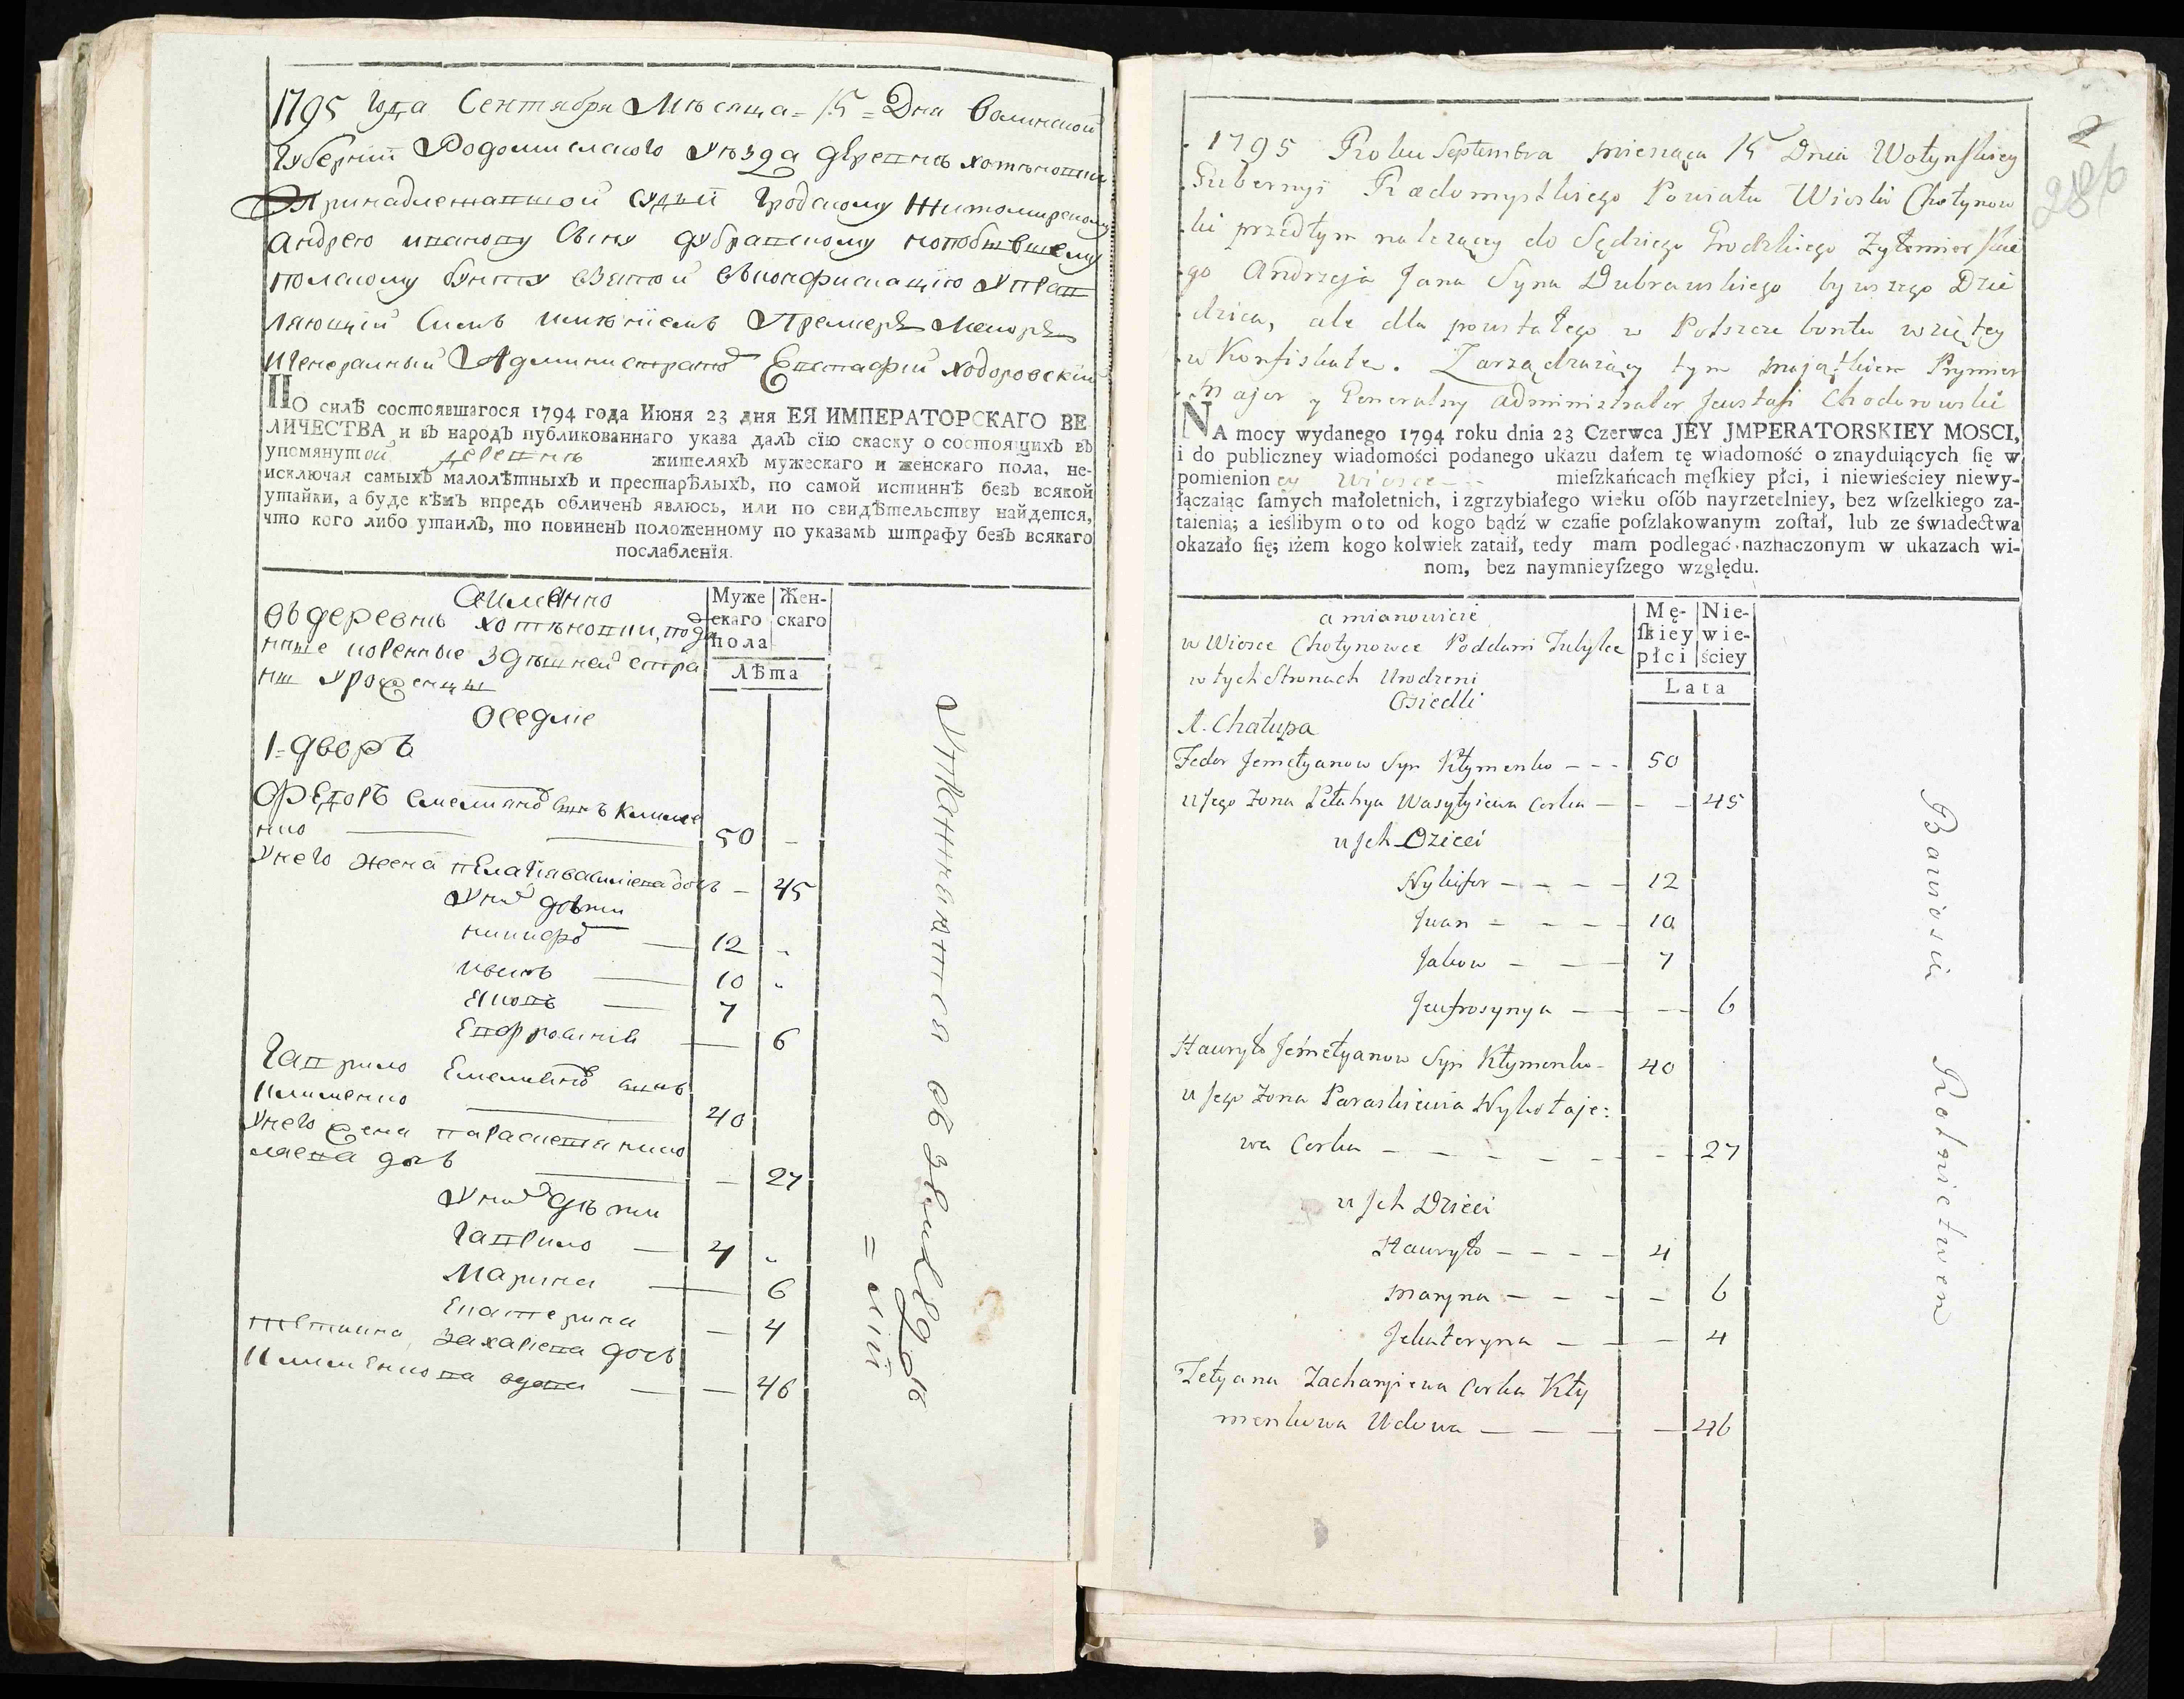 1795 года Сентября Мѣсяца = 15 = Дня Волинской
Губернїи Родомислского уѣзда дѣревнѣ хотѣновки
Принадлежавшой судьи Гродскому Житомирскому
андрею иванову сыну дубравскому
полскому бунту взятой въконфискацїю Управ
ляющїй Симъ имѣнїемъ Премиеръ Меиоръ
Генералный Администраторъ Евстафїй ходоровскїй
ПО силѣ состоявшагося 1794 года Июня 23 дня ЕЯ ИМПЕРАТОРСКАГО ВЕ
ЛИЧЕСТВА и въ народъ публикованнаго указа далъ сїю скаску о состоящихъ въ
упомянутой деревнѣ жителяхъ мужескаго и женскаго пола, не-
исключая самыхъ малолѣтныхъ и престарѣлыхъ, по самой истиннѣ безъ всякой
утайки, а буде кѣмъ впредь обличенъ явлюсь, или по свидѣтельству найдется,
что кого либо утаилъ, то повиненъ положенному по указамъ штрафу безъ всякаго
послабленїя.
Аимянно
въ деревнѣ хотѣновки, пода
ные коренные здѣшней стра
ны уроженцы
Оседлїе
Муже
скаго
пола
Жен-
скаго
Лѣта
1-дворъ
Федоръ емелианов сынъ Климе
нко 50 -
Унего жена пелагїя василїева дочь - 45
У них дѣти
никифор 12 -
иванъ 10 -
Яковъ 7
Евфросинїя 6
Гаврило Емелианов сынъ
Клименко 40
Унего жена параскета нико
лаева дочь - 27
У них дѣти
Гаврило 4 -
Марина 6
Екатерина - 4
тетиана захарїева дочь
Клименкова вдова - 46
1795 Roku Septembra miesiąca 15 Dnia Wołynskiey
Gubernyi Radomyslskiego Powiatu Wioski Chotynow
ki przedtym nalezący do Sędziego Grodzkiego Zytomierskie
go Andrzeja Jana Syna Dubrawskiego bywszego Dzie
dzica, ale dla powstałego w Polszcze bontu wziętey
w Konfiskatę. Zarządzaiący tym maiątkiem Prymier
Major y Generalny administrator Jewstafi Chodorowski
NA mocy wydanego 1794 roku dnia 23 Czerwca JEY JMPERATORSKIEY MOSCI,
i do publiczney wiadomości podanego ukazu dałem tę wiadomość o znayduiących ſię w
pomienioney Wiosce mieſzkańcach męſkiey płci, i niewieściey niewy-
łączaiąc ſamych małoletnich, i zgrzybiałego wieku oſób nayrzetelniey, bez wſzelkiego za-
taienia; a ieślibym o to od kogo bądź w czaſie poſzlakowanym zoſtał, lub ze świadectwa
okazało ſię; iżem kogo kolwiek zataił, tedy mam podlegać naznaczonym w ukazach wi-
nom, bez naymnieyſzego względu.
a mianowicie
w Wiosce Chotynowce Poddani Tutyłce
w tych Stronach Urodzeni
Osiedli
Mę-
ſkiey
płci
Nie-
wie-
ściey
Lata
1. Chałupa
Fedor Jemełyanow Syn Kłymenko - - - 50
u Jego Zona Pełahya Wasyłyiewa Corka - - - 45
u Jch Dzieci
Nykifor - - - - 12
Jwan - - - - 10
Jakow - - - 7
Jewfrosynya - - - 6
Hawryło Jemełyanow Syn Kłymenko - 40
u Jego Zona Paraskiewia Nykołaje:
wa Corka - - - - - - - 27
u Jch Dzieci
Hawryło - - - - 4
Maryna - - - - 6
Jekateryna - - - 4
Tetyana Zacharyiewa Corka Kły
menkowa Wdowa - - - - 46